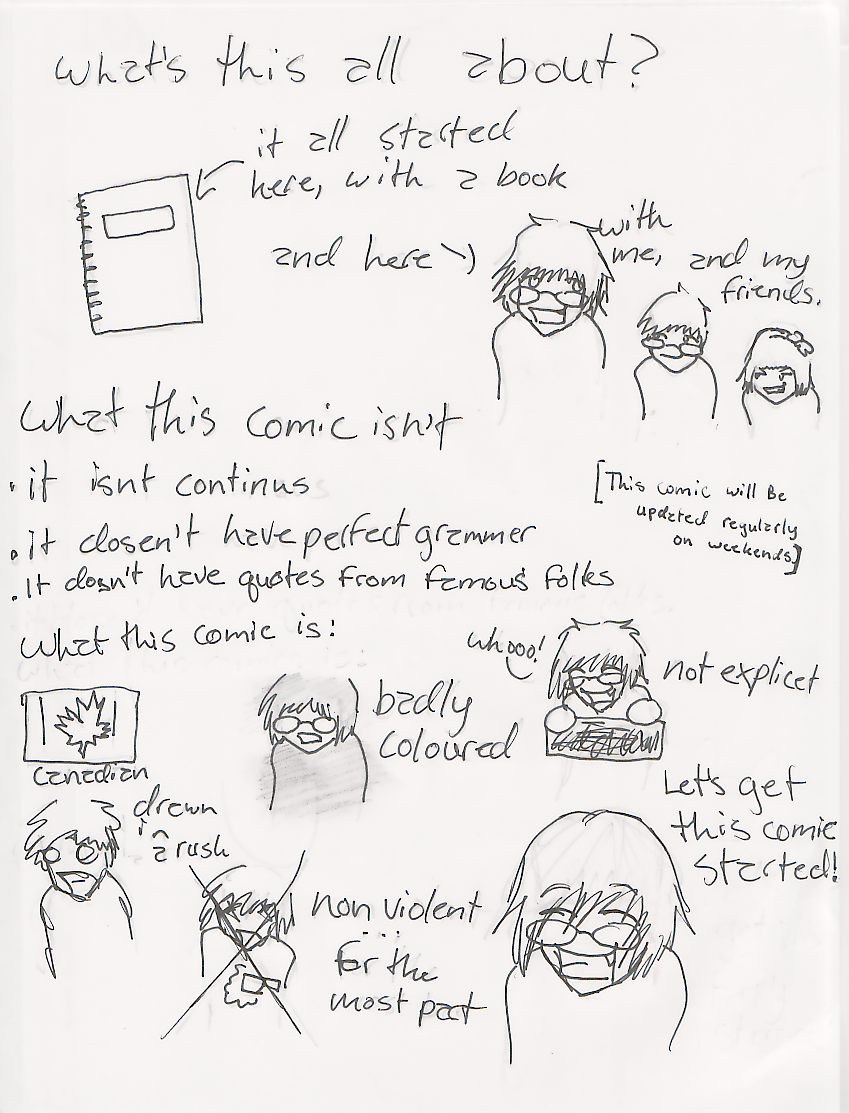 what's this all about?
it all started
here, with a book
and here
with
me, and my
friends.
what this comic isn't
. it isnt continus
. it dosen't have perfect grammer
. it dosn't have quotes from famous folks
[This comic will Be
updated regularly
on weekends.]
what this comic is:
canadian
badly
coloured
whooo!
not explicet
drawn
in a rush
non violent
...
for the
most part
Let's get
this comic
started!